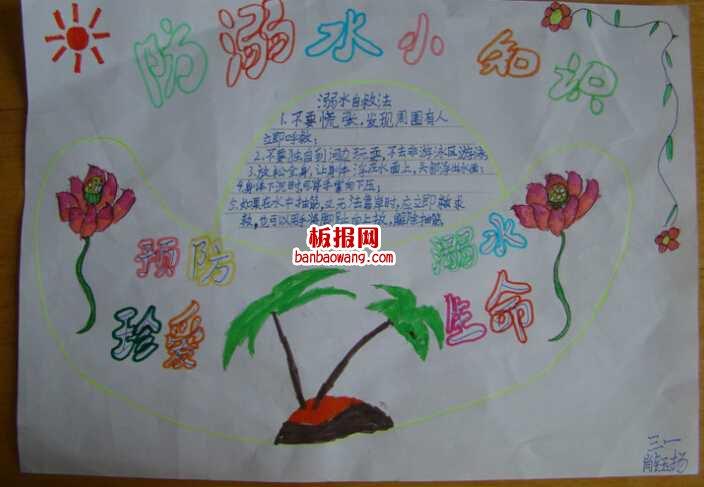 防溺水小知识
溺水自救法
1、不要慌张,发现周围有人
立即呼救;
2、不要独自到河边玩耍,不去非游泳区游泳
3、放松全身,让身体浮在水面上,头部浮出水面;
4、身体下沉时,可将手掌向下压;
5、如果在水中抽筋,又无法靠岸时,应立即求
救,也可以用手将脚趾向上扳,解除抽筋
板报网
banbaowang.com
预防 溺水
珍爱 生命
三一